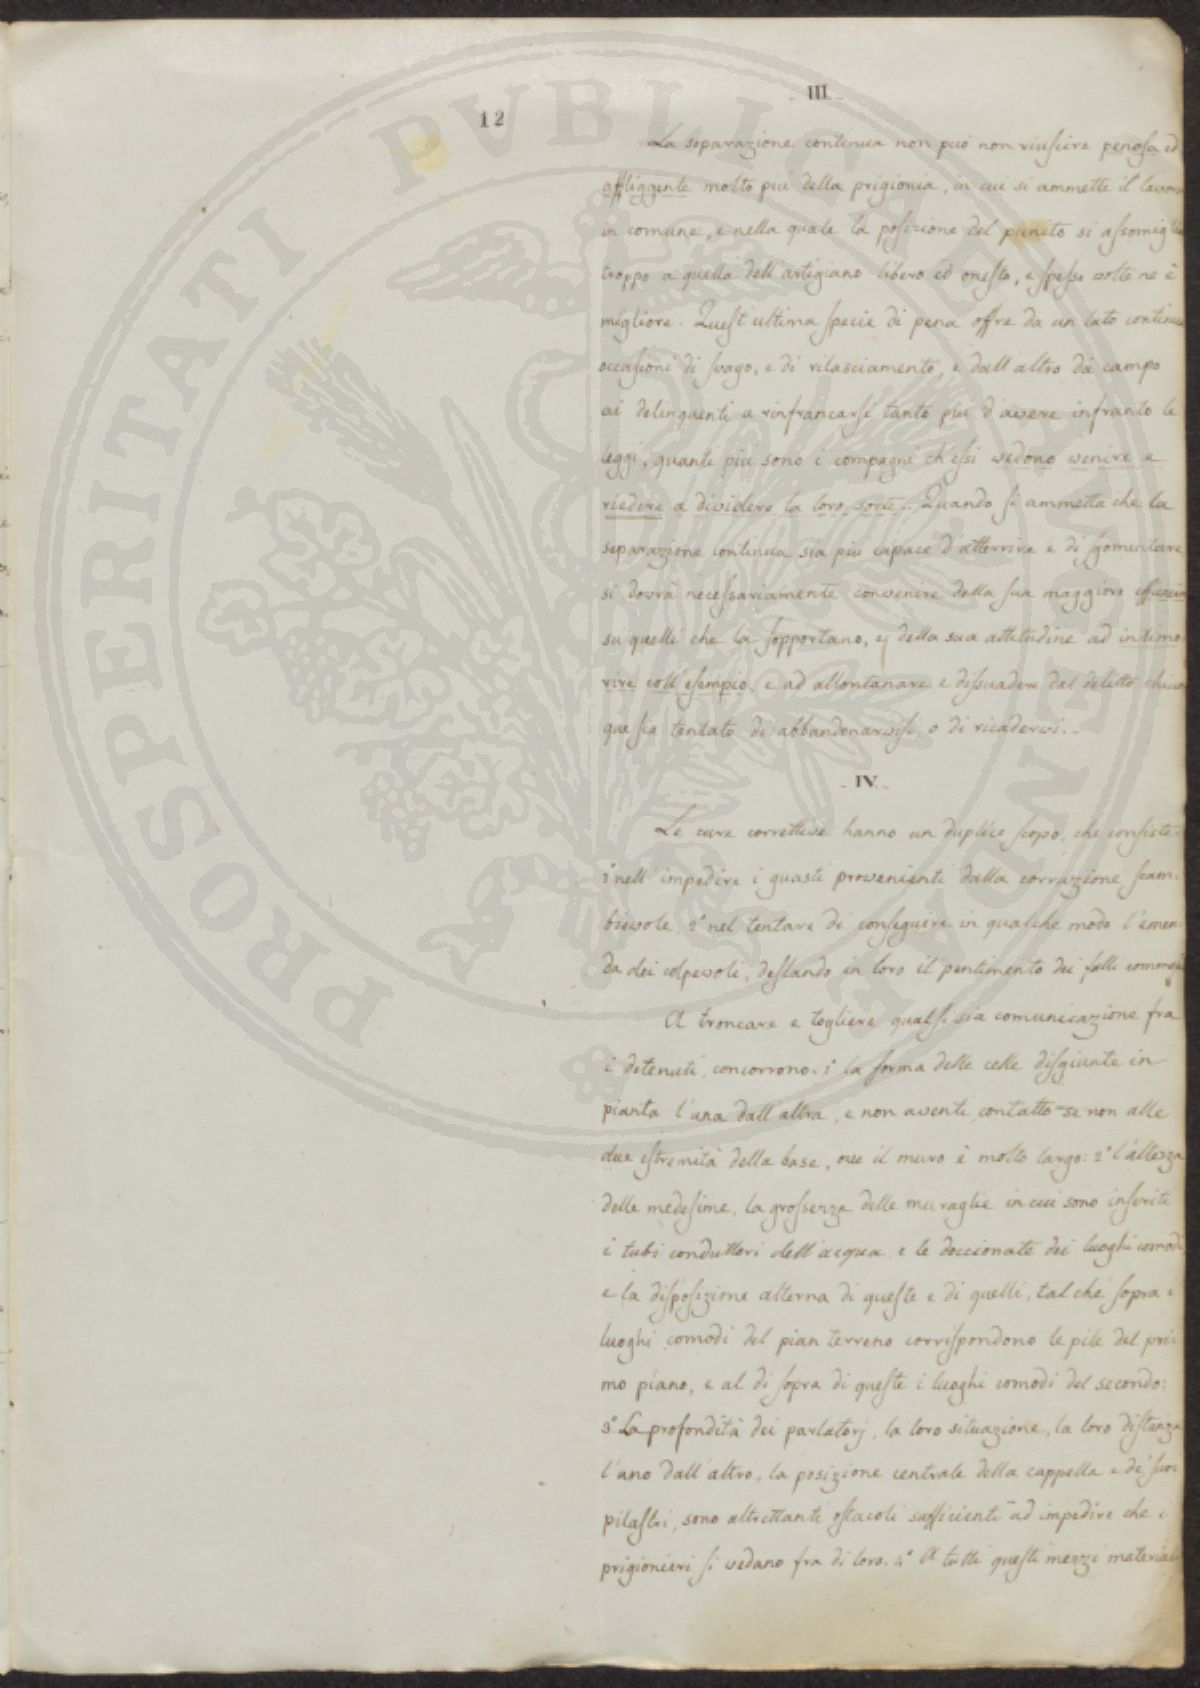 12
III.
La separazione continua non può non riuscire penosa ed
affliggente molto più della prigionia, in cui si ammette il lavoro
in comune, e nella quale la posizione del punito si assomiglia
troppo a quella dell'artigiano libero ed onesto, e spesse volte ne è
migliore. Quest'ultima specie di pena offre da un lato continue
occasioni di svago, e di rilasciamento, e dall'altro dà campo
ai delinquenti a rinfrancarsi tanto più d'avere infranto le
leggi, quanti più sono i compagni ch'essi vedono venire e
riedere a dividere la loro sorte. Quando si ammetta che la
separazione continua sia più capace d'atterrire e di sgomentare
si dovrà necessariamente convenire della sua maggiore efficacia
su quelli che la sopportano, e della sua attitudine ad intimo-
rire coll'esempio, e ad allontanare e dissuadere dal delitto chiun
que sia tentato di abbandonarvisi o di ricadervi.
IV.
Le cure correttive hanno un duplice scopo, che consiste:
1° nell'impedire i guasti provenienti dalla corruzione scam-
bievole, 2° nel tentare di conseguire in qualche modo l'emen-
da dei colpevoli, destando in loro il pentimento dei falli commessi
A troncare e togliere qualsisia comunicazione fra
i detenuti, concorrono: 1° la forma delle celle disgiunte in
pianta l'una dall'altra, e non aventi contatto se non alle
due estremità della base, ove il muro è molto largo: 2° l'altezza
delle medesime, la grossezza delle muraglie in cui sono inseriti
i tubi conduttori dell'acqua e le doccionate dei luoghi comodi
e la disposizione alterna di queste e di quelli, tal ché sopra i
luoghi comodi del pian terreno corrispondono le pile del pri-
mo piano, e al di sopra di queste i luoghi comodi del secondo:
3° La profondità dei parlatorj, la loro situazione, la loro distanza
l'uno dall'altro, la posizione centrale della cappella e de' suoi
pilastri, sono altrettanti ostacoli sufficienti ad impedire che i
prigionieri si vedano fra di loro. 4° A tutti questi mezzi materiali
PROSPERITATI PVBLICAE AVGENDAE